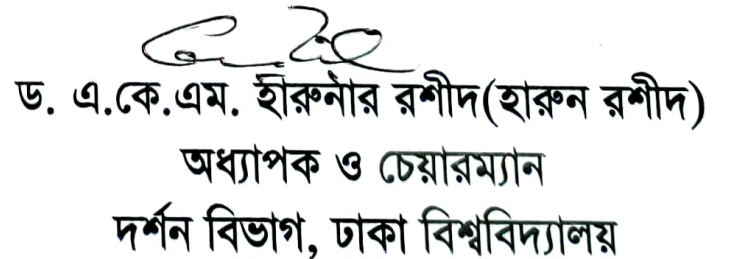 ড. এ.কে.এম. হারুনার রশীদ(হারুন রশীদ)
অধ্যাপক ও চেয়ারম্যান
দর্শন বিভাগ, ঢাকা বিশ্ববিদ্যালয়